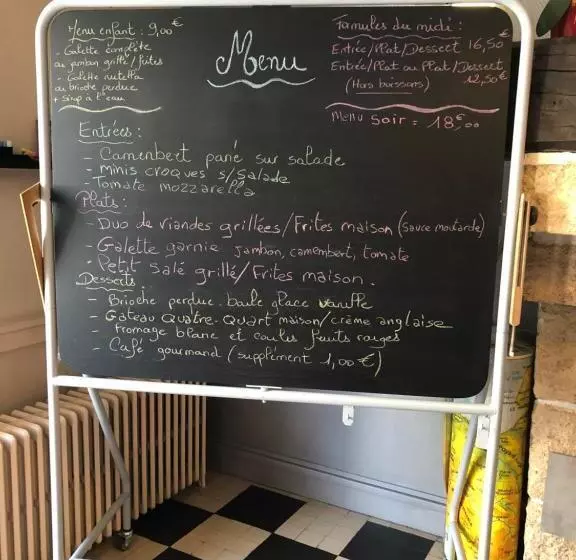 Menu enfant : 9,00€
- Galette complète
ou jambon grillé/frites
- Galette nutella
ou brioche perdue
+ sirop à l'eau
Menu
Formules du midi :
Entrée/Plat/Dessert 16,50€
Entrée/Plat ou Plat/Dessert
12,50€
(Hors boissons)
Menu Soir = 18€,00
Entrées :
- Camenbert pané sur salade
- Minis croques s/salade
- Tomate mozzarella
Plats :
- Duo de viandes grillées/Frites maison (sauce moutarde)
- Galette garnie jambon, camembert, tomate
- Petit Salé grillé/Frites maison.
Desserts
- Brioche perdue. boule glace vanille
- Gateau Quatre-Quart maison/crème anglaise
- Fromage blanc et coulis fruits rouges
- Café gourmand (supplément 1,00€)